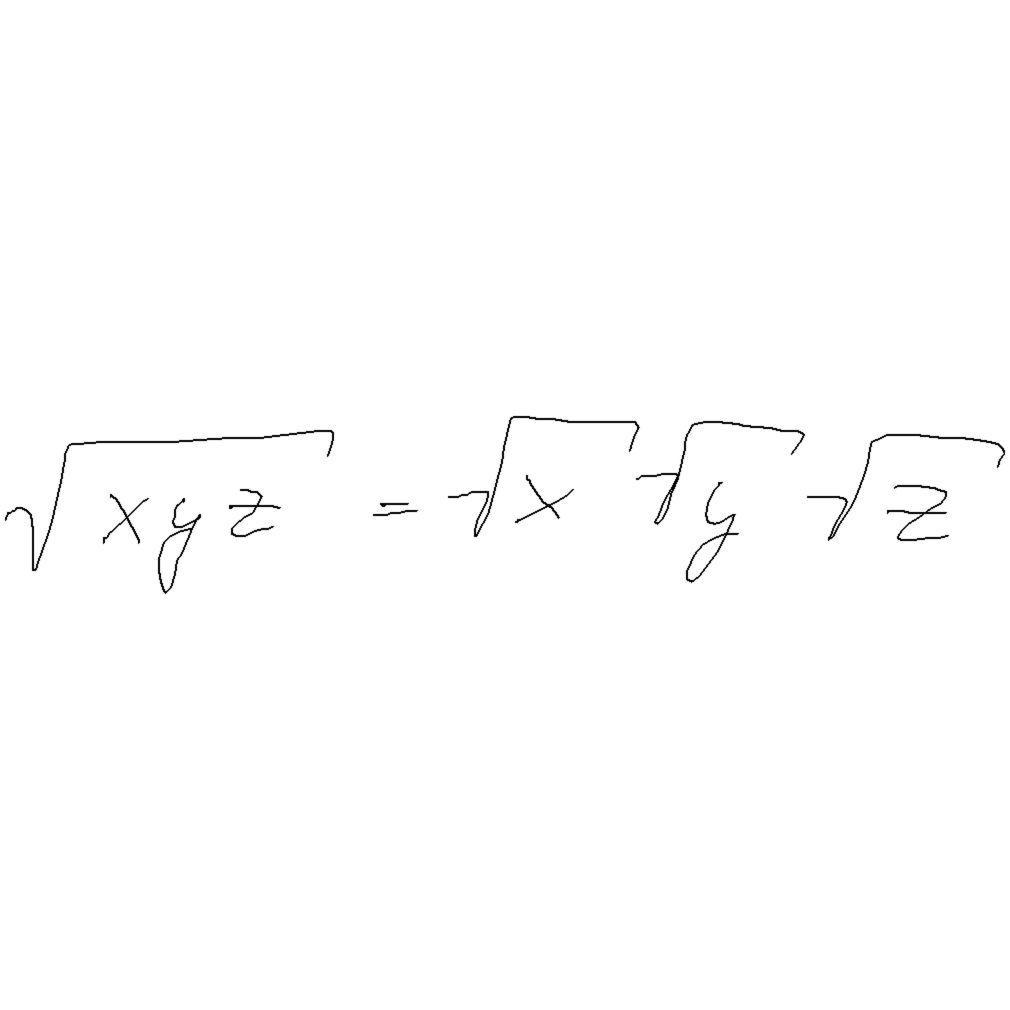 √xyz = √x √y √z